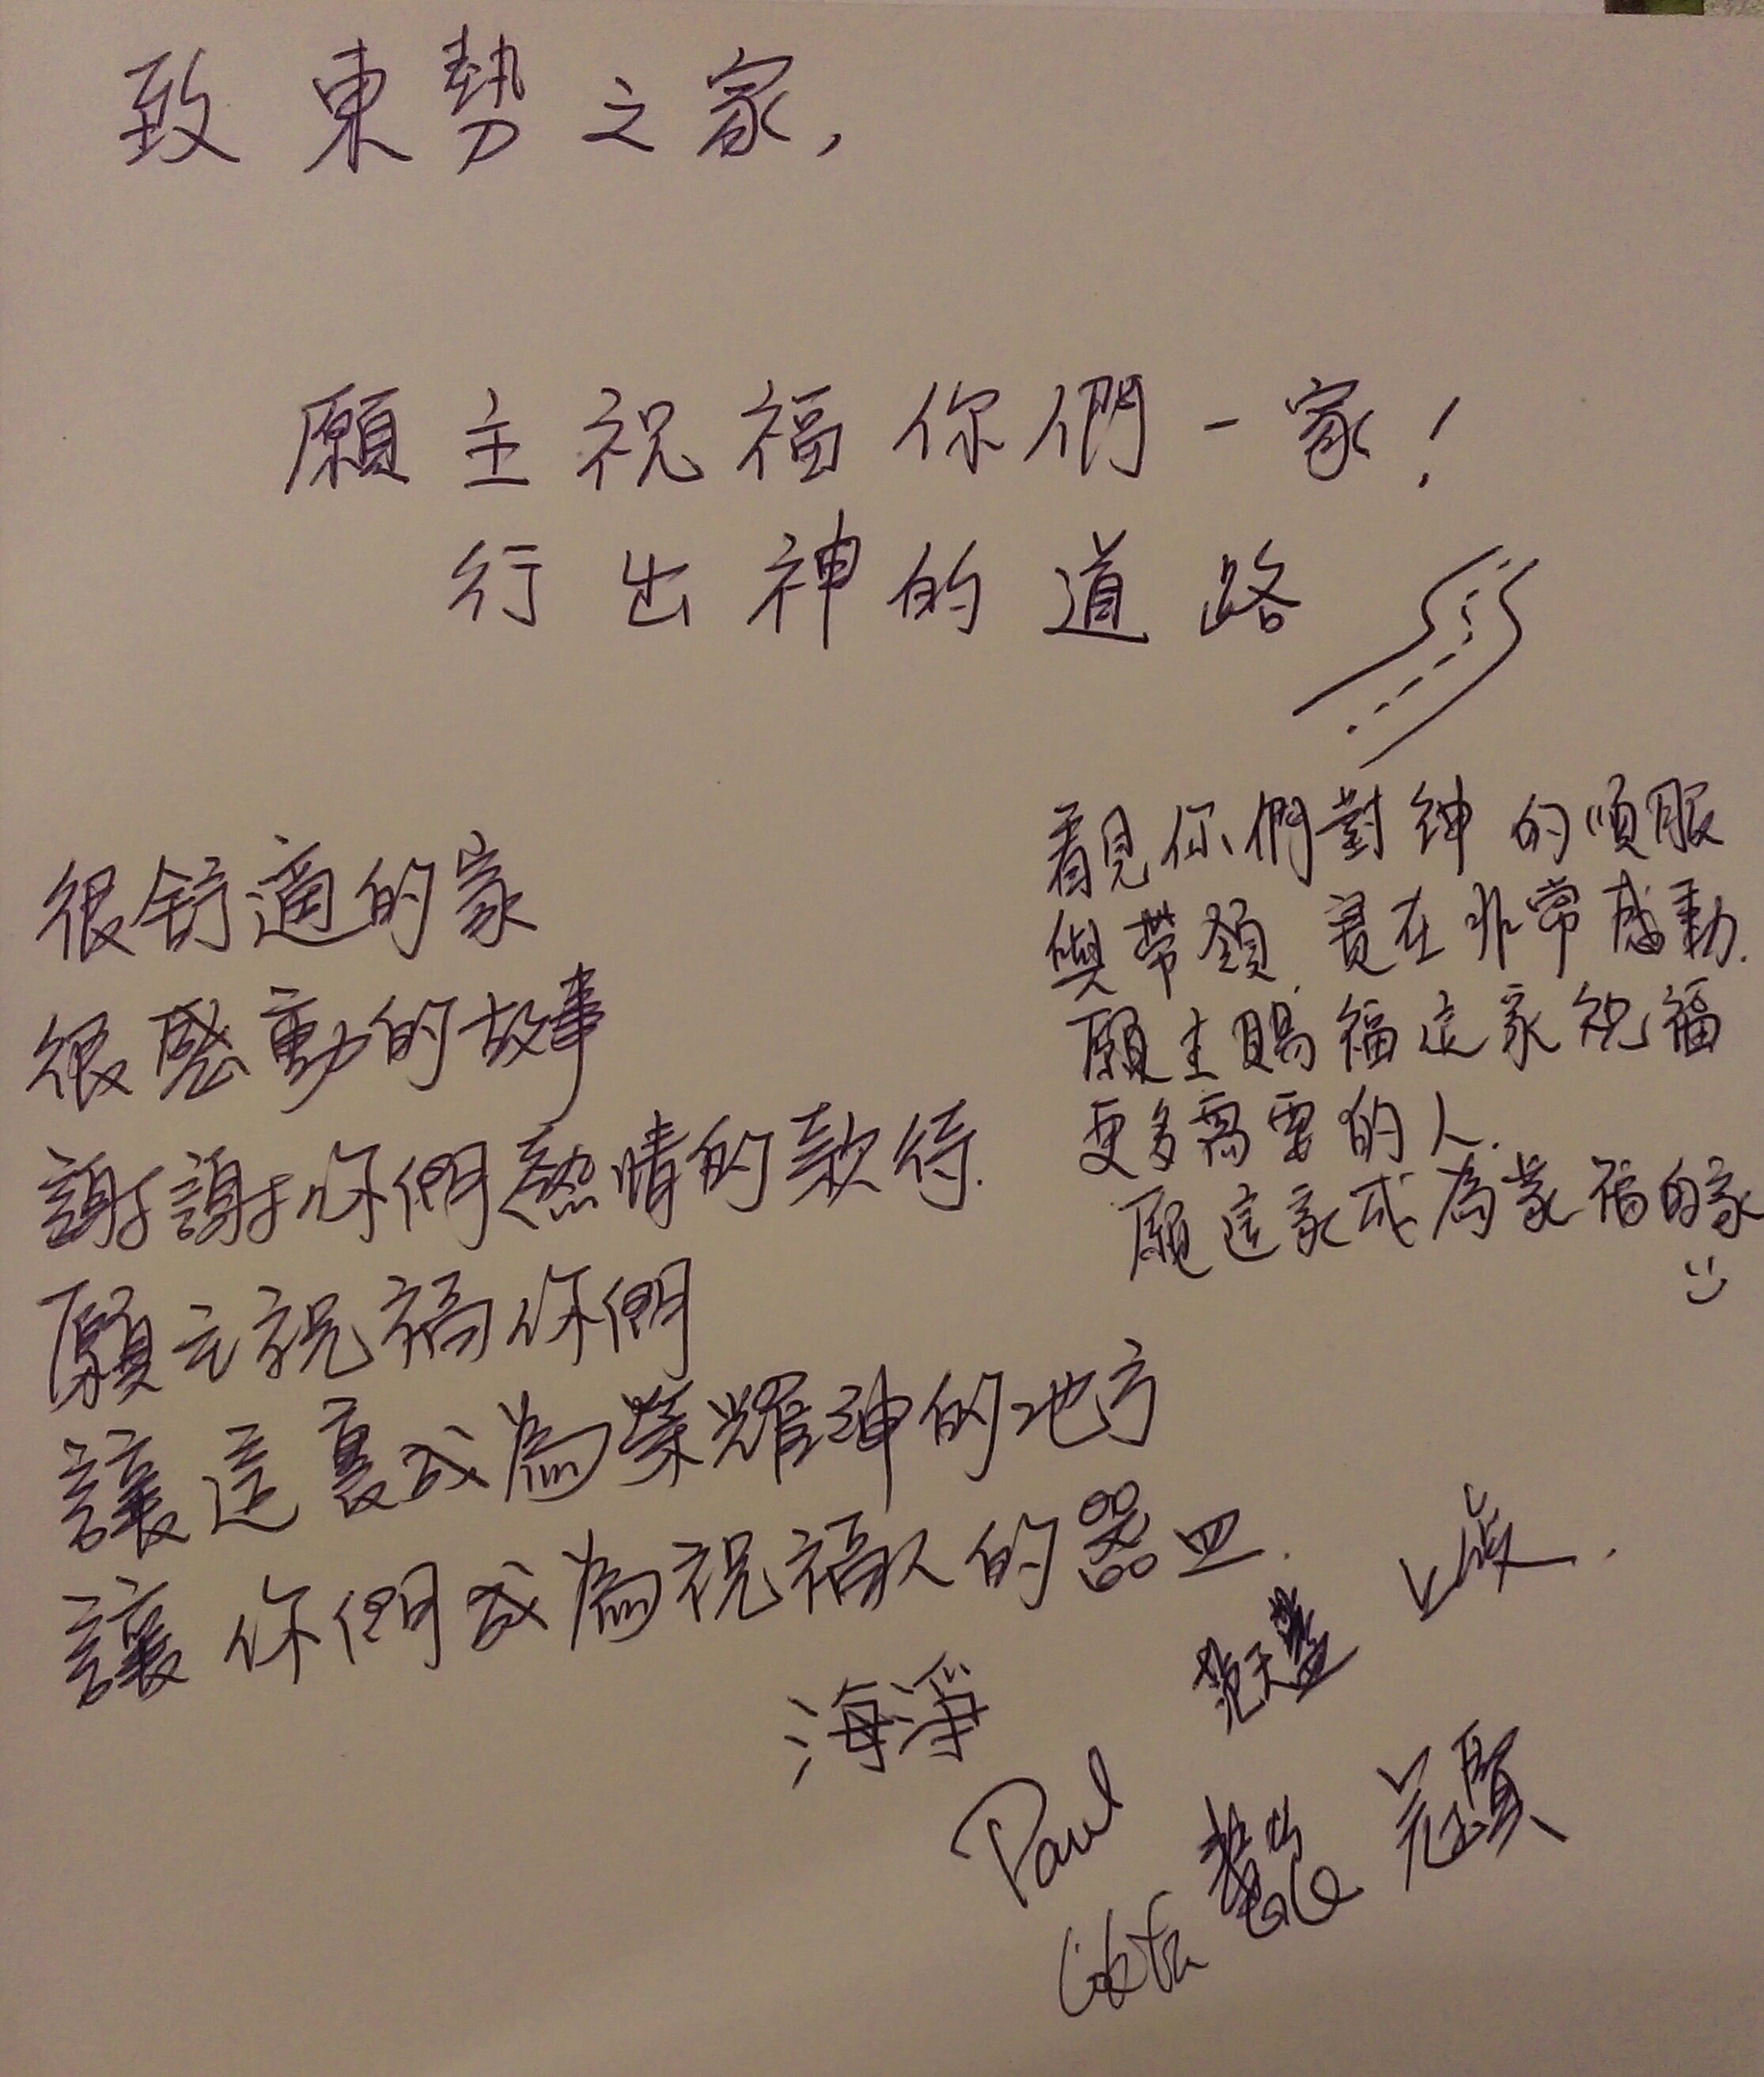 致東勢之家，
願主祝福你們一家！
行出神的道路
很舒適的家
很感動的故事
謝謝你們熱情的款待.
願主祝福你們
讓這裏成為榮耀神的地方
讓你們成為祝福人的器皿.
看見你們對神的順服
與帶領,實在非常感動.
願主賜福這家祝福
更多需要的人.
願這家成為蒙福的家
海淨
Paul